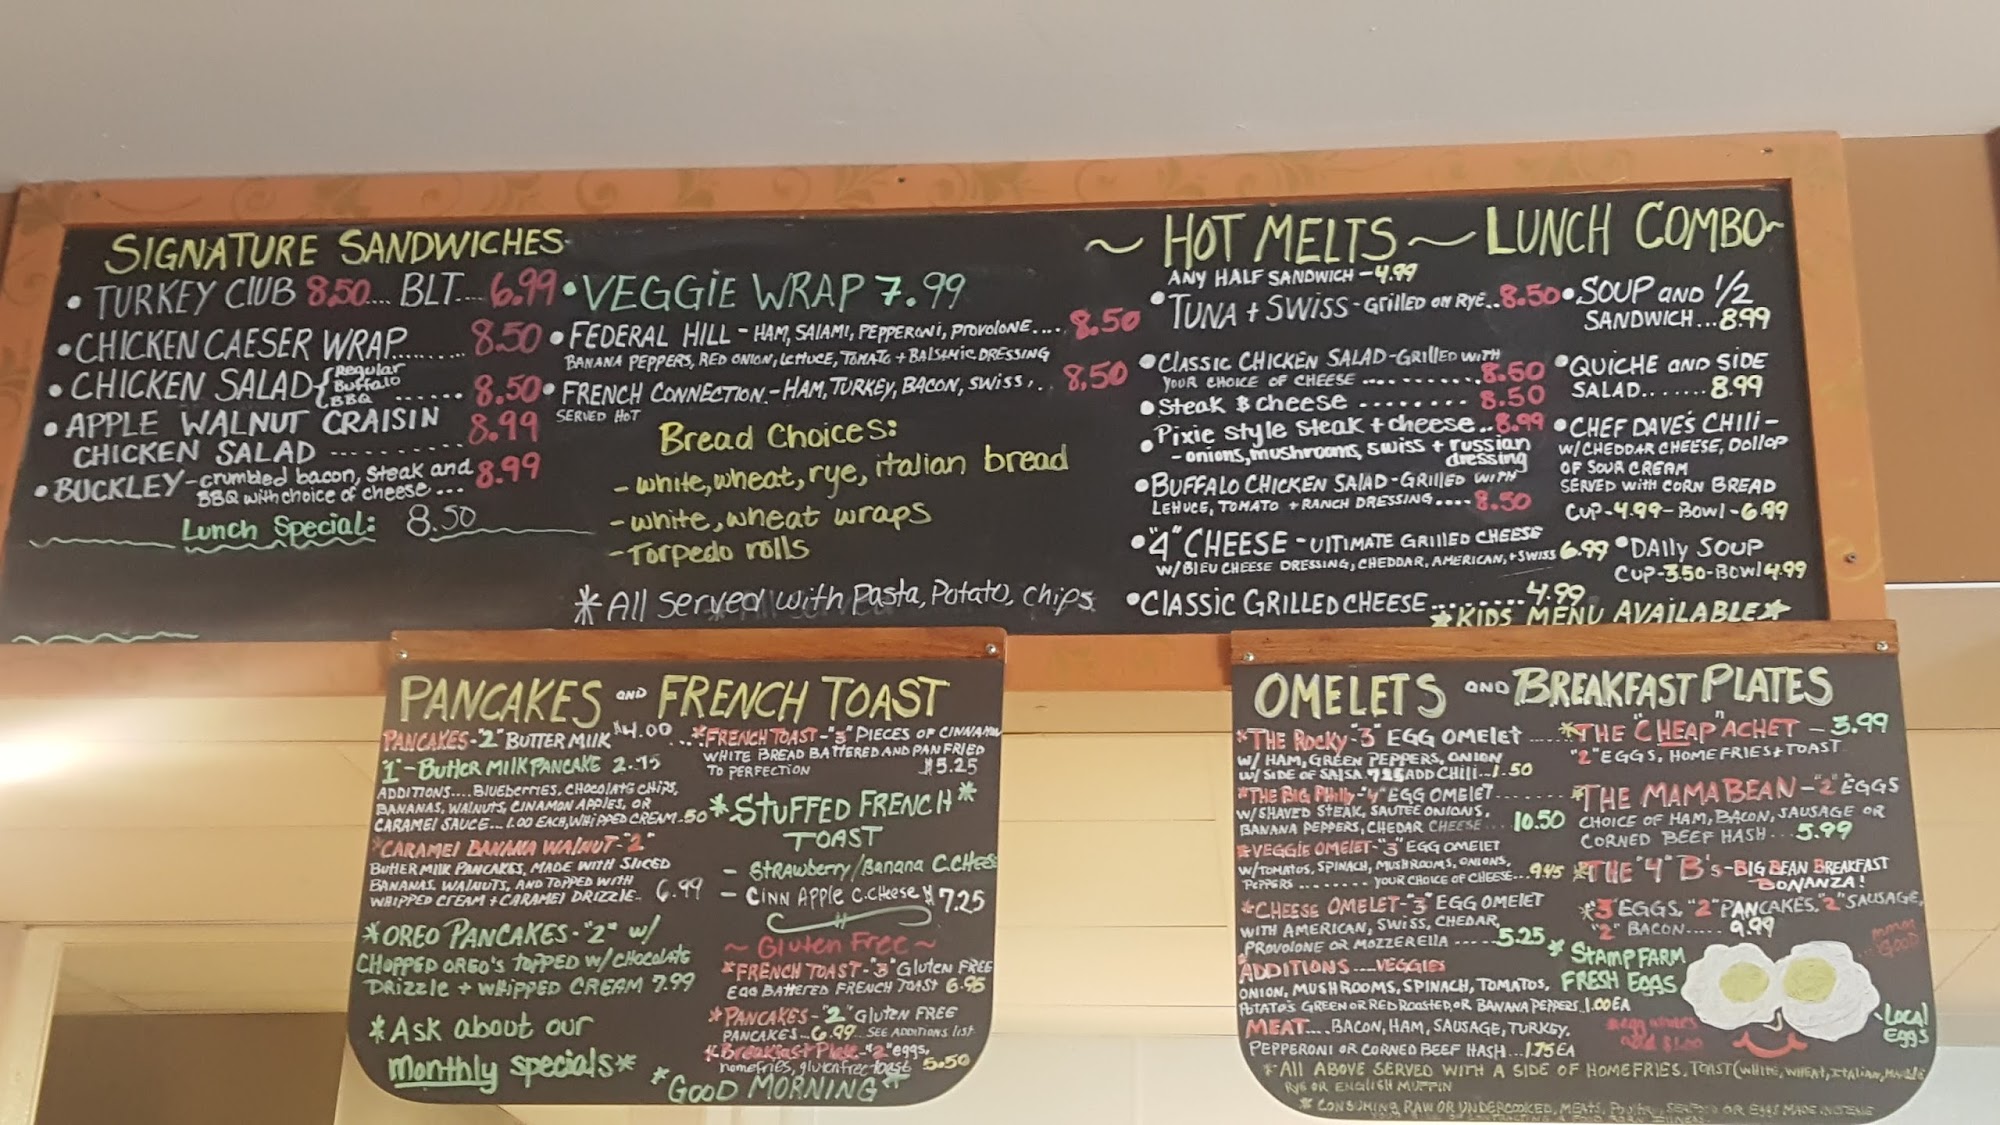 SIGNATURE SANDWICHES
• TURKEY CLUB 8.50.... BLT.... 6.99
• CHICKEN CAESER WRAP......... 8.50
• CHICKEN SALAD { Regular
Buffalo
BBQ ...... 8.50
• APPLE WALNUT CRAISIN
CHICKEN SALAD .......... 8.99
• BUCKLEY - crumbled bacon, steak and
BBQ with choice of cheese... 8.99
Lunch Special: 8.50
• VEGGIE WRAP 7.99
• FEDERAL HILL - HAM, SALAMI, PEPPERONI, PROVOLONE.... 8.50
BANANA PEPPERS, RED ONION, LETTUCE, TOMATO + BALSAMIC DRESSING
• FRENCH CONNECTION - HAM, TURKEY, BACON, SWISS... 8.50
SERVED HOT
Bread Choices:
- white, wheat, rye, italian bread
- white, wheat wraps
- Torpedo rolls
* All served with Pasta, Potato, chips
~ HOT MELTS ~
ANY HALF SANDWICH - 4.99
• TUNA + SWISS - Grilled on RYE.. 8.50
• CLASSIC CHICKEN SALAD - GRILLED WITH
YOUR CHOICE OF CHEESE .......... 8.50
• Steak & cheese ........ 8.50
• Pixie Style Steak + cheese.. 8.99
- onions, mushrooms, swiss + russian
dressing
• BUFFALO CHICKEN SALAD - GRILLED WITH
LETTUCE, TOMATO + RANCH DRESSING.... 8.50
• "4" CHEESE - ULTIMATE GRILLED CHEESE
W/BLEU CHEESE DRESSING, CHEDDAR, AMERICAN, + SWISS 6.99
• CLASSIC GRILLED CHEESE......... 4.99
LUNCH COMBO ~
• SOUP AND 1/2
SANDWICH... 8.99
• QUICHE AND SIDE
SALAD....... 8.99
• CHEF DAVE'S CHILI -
W/CHEDDAR CHEESE, DOLLOP
OF SOUR CREAM
SERVED WITH CORN BREAD
CUP - 4.99 - BOWL - 6.99
• DAILY SOUP
CUP - 3.50 - BOWL 4.99
* KIDS MENU AVAILABLE *
PANCAKES AND FRENCH TOAST
PANCAKES - "2" BUTTER MILK $4.00
"1" - BUTTER MILK PANCAKE
ADDITIONS.... BLUEBERRIES, CHOCOLATE CHIPS,
BANANAS, WALNUTS, CINAMON APPLES, OR
CARAMEL SAUCE... 1.00 EACH, WHIPPED CREAM .50
* CARAMEL BANANA WALNUT - "2"
BUTTER MILK PANCAKES, MADE WITH SLICED
BANANAS, WALNUTS, AND TOPPED WITH
WHIPPED CREAM + CARAMEL DRIZZLE.. 6.99
* OREO PANCAKES - "2" W/
CHOPPED OREO'S TOPPED W/ CHOCOLATE
DRIZZLE + WHIPPED CREAM 7.99
* Ask about our
monthly specials *
* FRENCH TOAST - "3" PIECES OF CINNAMON
WHITE BREAD BATTERED AND PAN FRIED
TO PERFECTION $5.25
* STUFFED FRENCH *
TOAST
- STRAWBERRY/BANANA C.CHEESE
- CINN APPLE C.CHEESE $7.25
~ Gluten Free ~
* FRENCH TOAST - "3" GLUTEN FREE
EGG BATTERED FRENCH TOAST 6.95
* PANCAKES - "2" GLUTEN FREE
PANCAKES... 6.99 SEE ADDITIONS LIST
* Breakfast Plate - "2" eggs,
homefries, gluten free toast 5.50
* GOOD MORNING *
OMELETS AND BREAKFAST PLATES
* THE ROCKY - "3" EGG OMELET ....
W/ HAM, GREEN PEPPERS, ONION
W/ SIDE OF SALSA 7.25 ADD CHILI..1.50
* THE BIG PHILLY - "4" EGG OMELET..........
W/SHAVED STEAK, SAUTEE ONIONS,
BANANA PEPPERS, CHEDAR CHEESE.... 10.50
* VEGGIE OMELET - "3" EGG OMELET
W/TOMATOS, SPINACH, MUSHROOMS, ONIONS,
PEPPERS ........ YOUR CHOICE OF CHEESE...
* CHEESE OMELET - "3" EGG OMELET
WITH AMERICAN, SWISS, CHEDAR,
PROVOLONE OR MOZZERELLA ..... 5.25
ADDITIONS .... VEGGIES
ONION, MUSHROOMS, SPINACH, TOMATOS,
POTATO'S GREEN OR RED ROASTED, OR BANANA PEPPERS. 1.00 EA
MEAT.... BACON, HAM, SAUSAGE, TURKEY,
PEPPERONI OR CORNED BEEF HASH... 1.75 EA
* THE "CHEAP" ACHET - 3.99
"2" EGGS, HOMEFRIES + TOAST
* THE MAMA BEAN - "2" EGGS
CHOICE OF HAM, BACON, SAUSAGE OR
CORNED BEEF HASH... 5.99
* THE "4" B's - BIG BEAN BREAKFAST
BONANZA!
* "3" EGGS, "2" PANCAKES, "2" SAUSAGE,
"2" BACON..... 9.99
* STAMP FARM
FRESH EGGS
mmm
GOOD
LOCAL
EGGS
* egg whites
add $1.00
* ALL ABOVE SERVED WITH A SIDE OF HOMEFRIES, TOAST (WHITE, WHEAT, ITALIAN,
RYE OR ENGLISH MUFFIN
* CONSUMING RAW OR UNDERCOOKED, MEATS, POULTRY, SEAFOOD OR EGGS